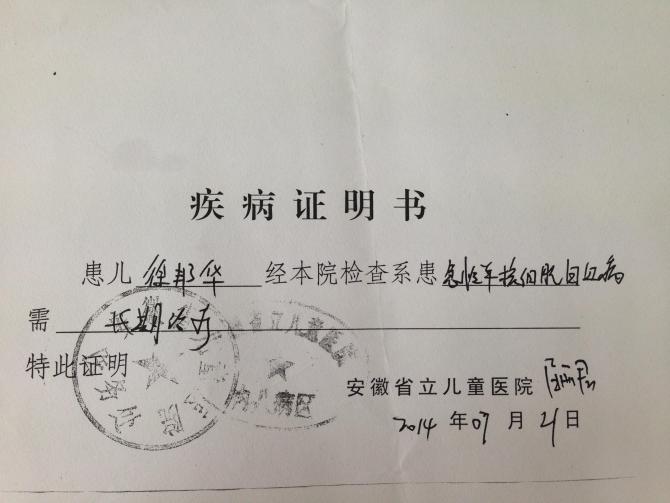 疾病证明书
患儿 徐邦华 经本院检查系患 急性单核细胞白血病
需 长期治疗
特此证明
安徽省立儿童医院
2014 年 07 月 21 日